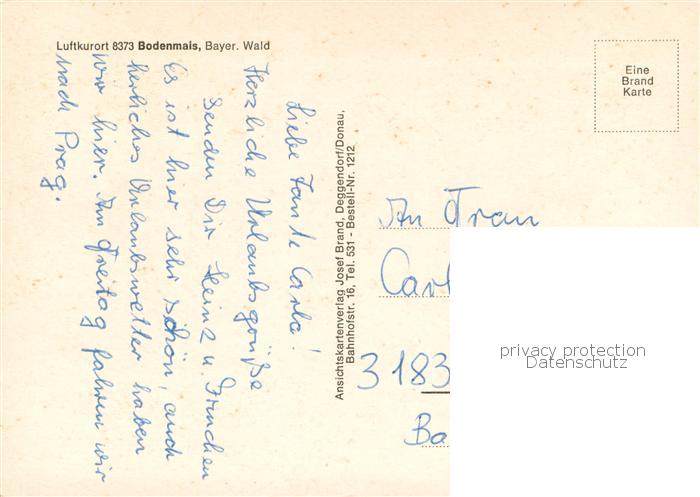 Luftkurort 8373 Bodenmais, Bayer. Wald
Liebe Tante Carla!
Herzliche Urlaubsgrüße
senden Dir Heinz u.
Es ist hier sehr schön, auch
herliches Urlaubswetter haben
wir hier. Am Freitag fahren wir
nach Prag.
Ansichtskartenverlag Josef Brand, Deggendorf/Donau,
Bahnhofstr. 16, Tel. 531 - Bestell-Nr. 1212
Eine
Brand
Karte
An Frau
Carl
3183
Ba
privacy protection
Datenschutz